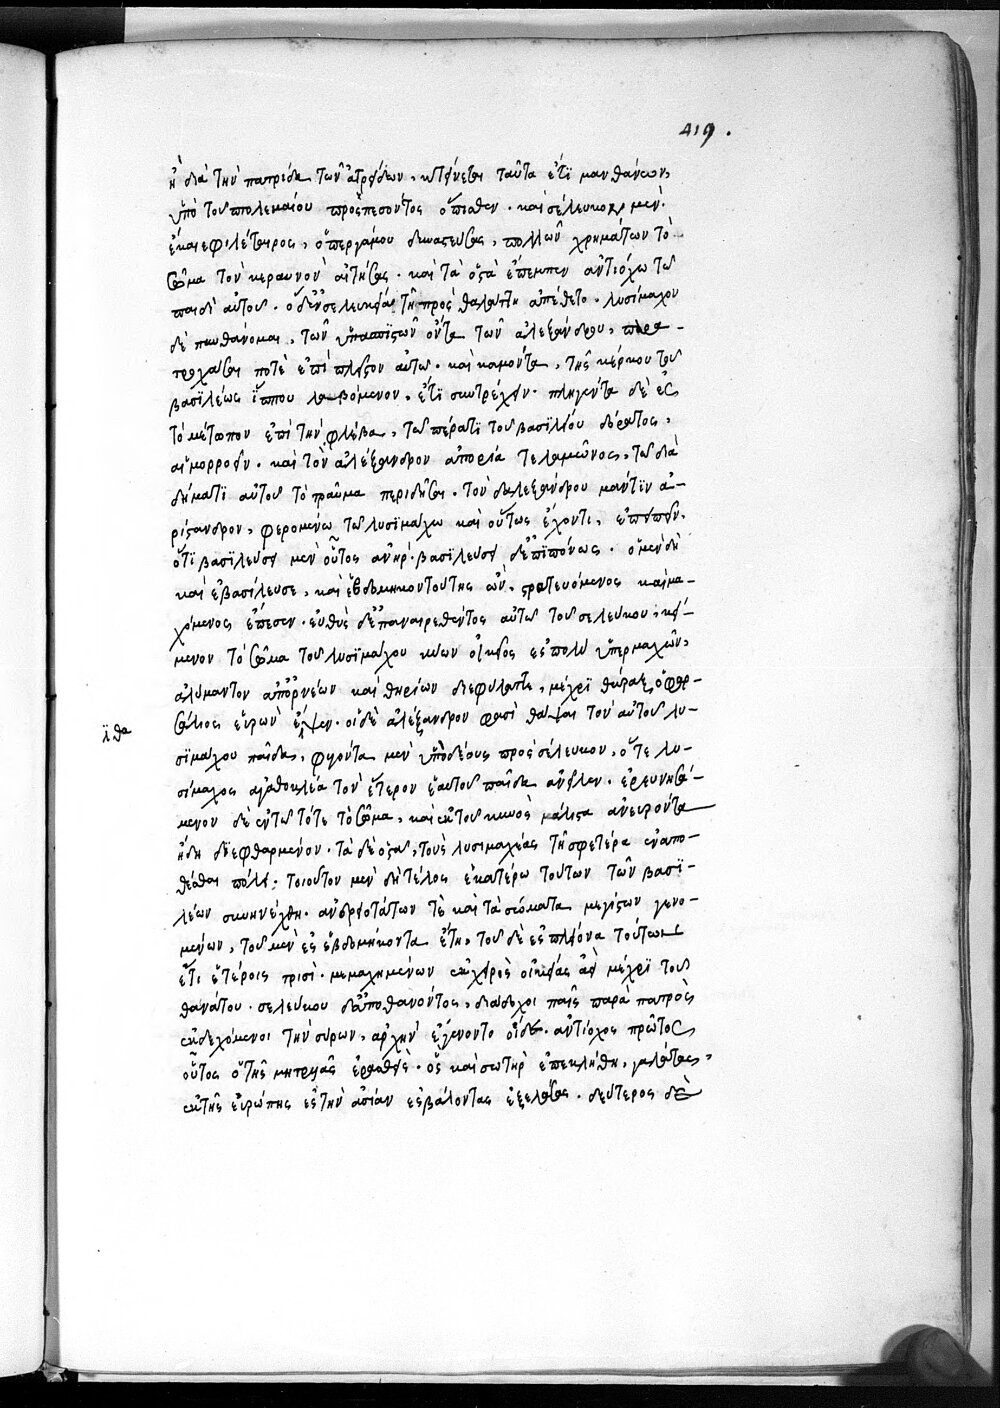 419.
ἢ διὰ τὴν πατρίδα τῶν ἀτρειδῶν. κτείνεται ταῦτα ἔτι μανθάνων,
ὑπὸ τοῦ πτολεμαίου προσπεσόντος ὄπισθεν. καὶ σέλευκον μὲν
ἔκαιε φιλέταιρος, ὁ περγάμου δυναστεύσας, πολλῶν χρημάτων τὸ
σῶμα τὸν κεραυνὸν αἰτήσας. καὶ τὰ ὀστᾶ ἔπεμπεν ἀντιόχω τῶ
παιδὶ αὐτοῦ. ὁ δ' ἐν σελευκεία τῆ πρὸς θαλάττη ἀπέθετο. λυσίμαχον
δὲ πυνθάνομαι, τῶν ὑπασπιστῶν ὄντα τῶν ἀλεξάνδρου, παρα-
τροχάσαι ποτὲ ἐπὶ πλεῖστον αὐτῶ. καὶ καμόντα, τῆς κέρκου τοῦ
βασιλέως ἵππου λαβόμενον, ἔτι συντρέχειν. πληγέντα δὲ ἐς
τὸ μέτωπον ἐπὶ τὴν φλέβα, τῶ πέρατι τοῦ βασιλείου δόρατος,
αἱμορροεῖν. καὶ τὸν ἀλέξανδρον ἀπορία τελαμῶνος, τῶ δια
δήματι αὐτοῦ τὸ τραῦμα περιδῆσαι. τὸν δ' ἀλεξάνδρου μάντιν ἀ-
ρίστανδρον, φερομένω τῶ λυσιμάχω καὶ οὕτως ἔχοντι, ἐπειπεῖν.
ὅτι βασιλεύσει μὲν οὗτος ἀνήρ. βασιλεύσει δ' ἐπιπόνως. ὁ μὲν δὴ
καὶ ἐβασίλευσε, καὶ ἑβδομηκοντούτης ὢν, στρατευόμενος καὶ μα-
χόμενος ἔπεσεν. εὐθὺς δ' ἐπαναιρεθέντος αὐτῶ τοῦ σελεύκου, κεί-
μενον τὸ σῶμα τοῦ λυσιμάχου κύων οἰκεῖος ἐς πολὺ ὑπερμαχῶν,
ἀλύμαντον ἀπ' ὀρνέων καὶ θηρίων διεφύλαττε, μέχρι θώραξ ὁ φαρ-
σάλιος εὑρὼν ἔθαψεν. οἱ δὲ ἀλέξανδρον φασὶ θάψαι τὸν αὐτοῦ λυ-
σιμάχου παῖδα, φυγόντα μὲν ὑπὸ δέους πρὸς σέλευκον, ὅτε λυ-
σίμαχος ἀγαθοκλέα τὸν ἕτερον ἑαυτοῦ παῖδα ἀνεῖλεν. ἐρευνησά-
μενον δὲ ἐν τῶ τότε τὸ σῶμα, καὶ ἐκ τοῦ κυνὸς μάλιστα ἀνευρόντα
ἤδη διεφθαρμένον. τὰ δὲ ὀστᾶ, τοὺς λυσιμαχέας τῆ σφετέρα ἐναπο-
θέσθαι πόλει. τοιοῦτον μὲν δὴ τέλος ἑκατέρω τούτων τῶν βασι-
λέων συνηνέχθη. ἀνδρειοτάτων τὲ καὶ τὰ σώματα μεγίστων γενο-
μένων, τοῦ μὲν ἐς ἑβδομήκοντα ἔτη, τοῦ δὲ ἐς πλείονα τούτων
ἔτι ἑτέροις τρισὶ. μεμαχημένων ἐκ χειρὸς οἰκείας ἀεὶ μέχρι τοῦ
θανάτου. σελεύκου δ' ἀποθανόντος, διάδοχοι παῖς παρὰ πατρὸς
ἐκδεχόμενοι τὴν σύρων, ἀρχὴν ἐγένοντο οἵδε. ἀντίοχος πρῶτος
οὗτος ὁ τῆς μητρυιᾶς ἐρασθείς. ὃς καὶ σωτὴρ ἐπεκλήθη, γαλάτας,
ἐκ τῆς εὐρώπης ἐς τὴν ἀσίαν ἐσβάλοντας ἐξελάσας. δεύτερος δὲ